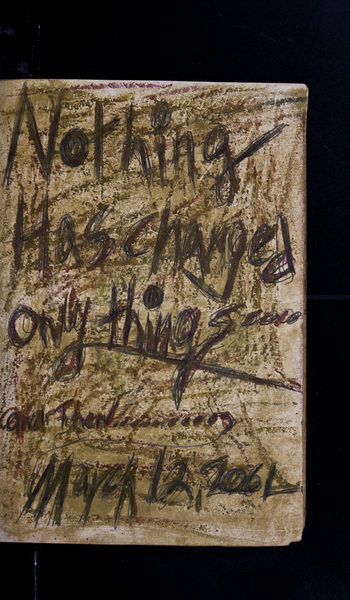 Nothing
Has changed
only things.....
and Then............
March 12, 2062